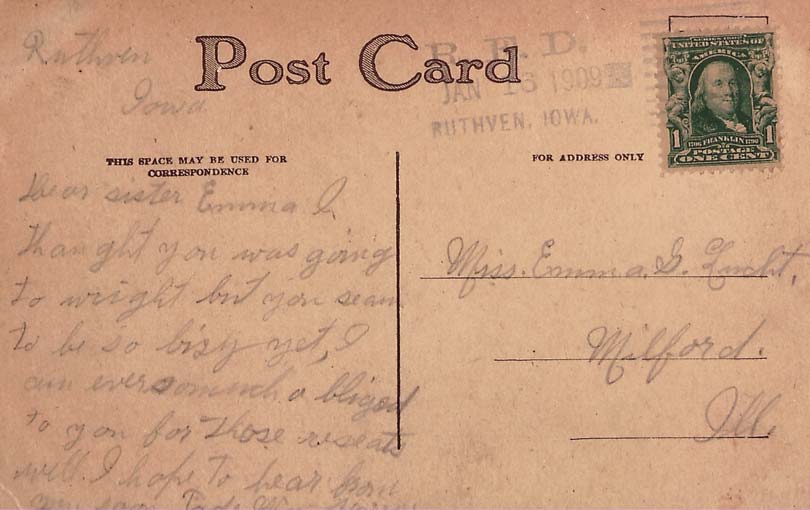 Ruthven
Iowa
Post Card
R.F.D.
JAN 16 1909
RUTHVEN, IOWA.
SERIES 1902
UNITED STATES OF
AMERICA
1 1
1706 FRANKLIN 1790
POSTAGE
ONE CENT
THIS SPACE MAY BE USED FOR
CORRESPONDENCE
FOR ADDRESS ONLY
Dear sister Emma I
thaught you was going
to wright but you seam
to be so bisy yet, I
am eversomuch obliged
to you for those
well. I hope to hear from
you soon
Miss. Emma. G. Lucht,
Milford.
Ill.